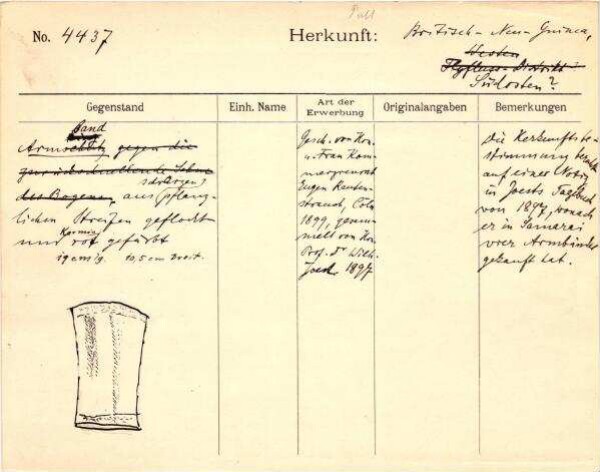 No. 4437
Herkunft:
Britisch-Neu-Guinea,
Westen
Flyfluss-Distrikt
Südosten?
Gegenstand
Einh. Name
Art der Erwerbung
Originalangaben
Bemerkungen
band
Armschutz gegen die
zurückschnellende Sehne
des Bogens, aus pflanz-
lichen Streifen geflochten
und rot gefärbt
Karmin
19 cm lg. 10,5 cm breit.
Gesch. von Hrn.
u. Frau Kom-
merzienrat
Eugen Rauten-
strauch, Cöln
1899, gesam-
melt von Hrn.
Prof. Dr. Wilh.
Joest 1897
Die Herkunftsbe-
stimmung beruht
auf einer Notiz
in Joests Tagebuch
von 1897, wonach
er in Samarai
vier Armbinden
gekauft hat.